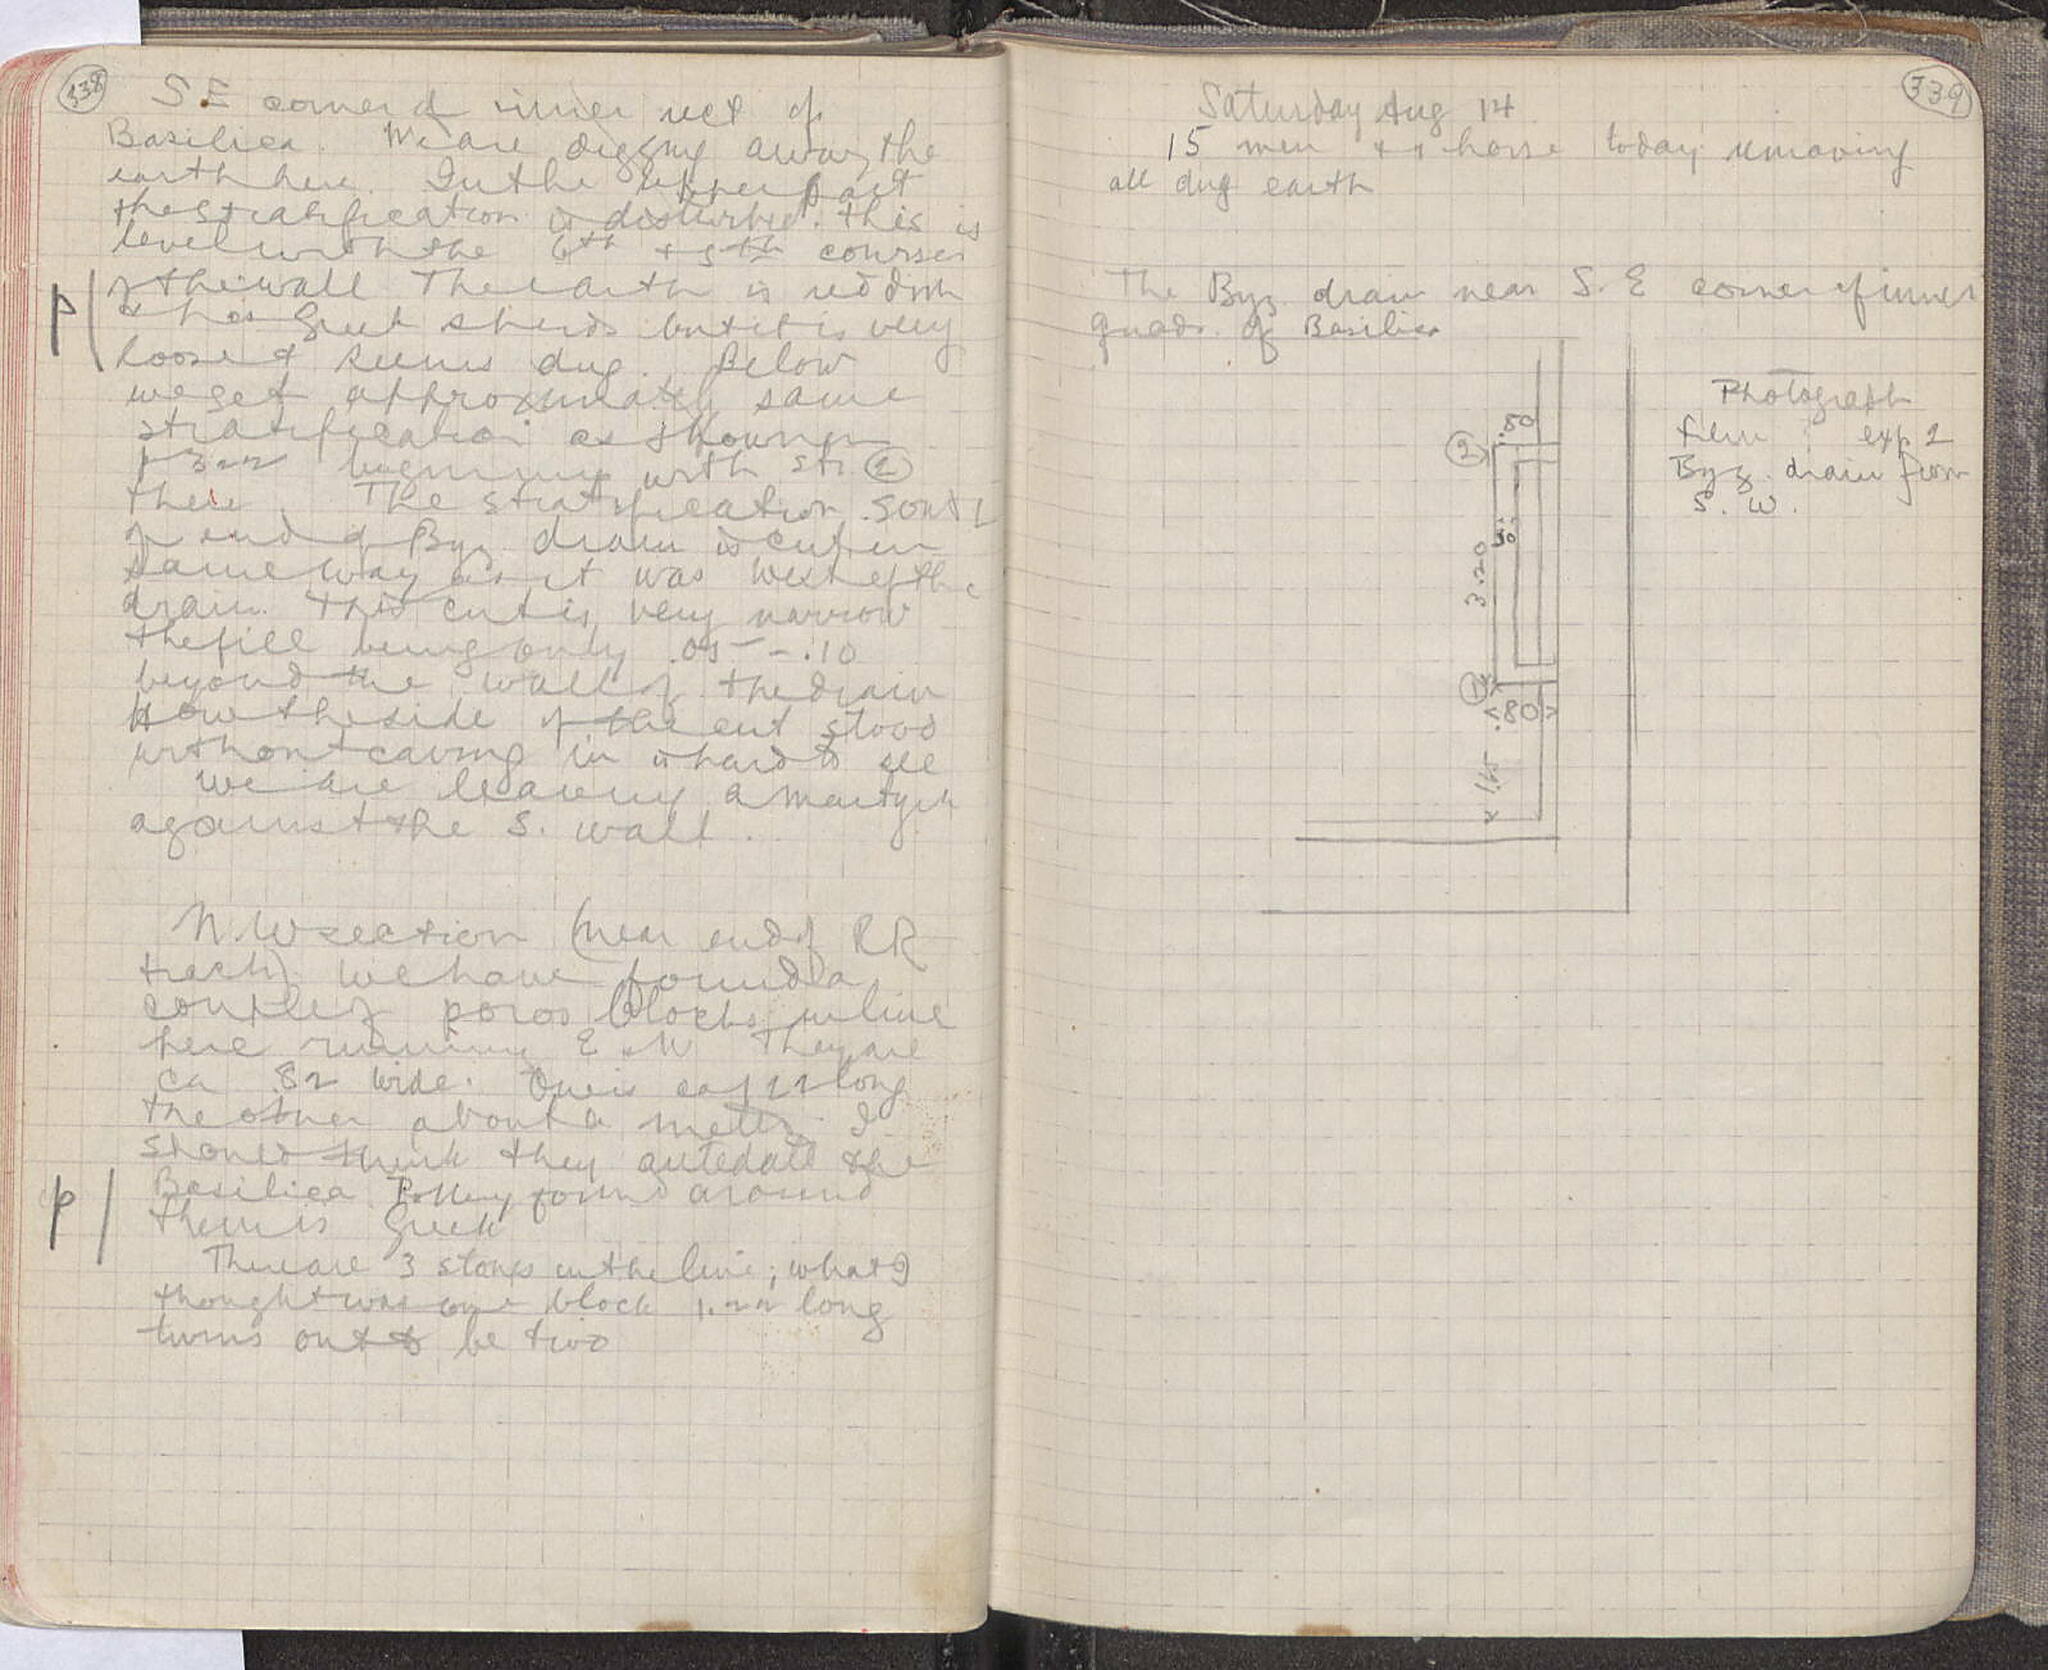 338
S E corner of inner rect of
Basilica. We are digging away the
earth here. In the upper part
the stratification is disturbed. this is
level with the 6th + 5th courses
of the wall The earth is reddish
p
& has Greek sherds but it is very
loose & seems dug. Below
we get approximately same
stratification as shown on
p 322 beginning with str. 2
there. The stratification south
of end of Byz. drain is cut in
same way as it was west of the
drain. This cut is very narrow
the fill being only .05 - .10
beyond the wall of the drain
How the side of the cut stood
without caving in is hard to see
We are leaving a martyr
against the S. wall.
N. W section (near end of RR
track) we have found a
couple of poros blocks in line
here running E + W They are
ca .82 wide. One is ca 1.22 long
the other about a meter. I
should think they antedate the
p
Basilica Pottery found around
them is Greek
There are 3 stones in the line; what I
thought was one block 1.22 long
turns out to be two
339
Saturday Aug 14
15 men + 1 horse today removing
all dug earth
The Byz. drain near S. E corner of inner
quadr. of Basilica
Photograph
film : exp 2
Byz. drain from
S. W.
.80
2
3.20
1
.80
1.65